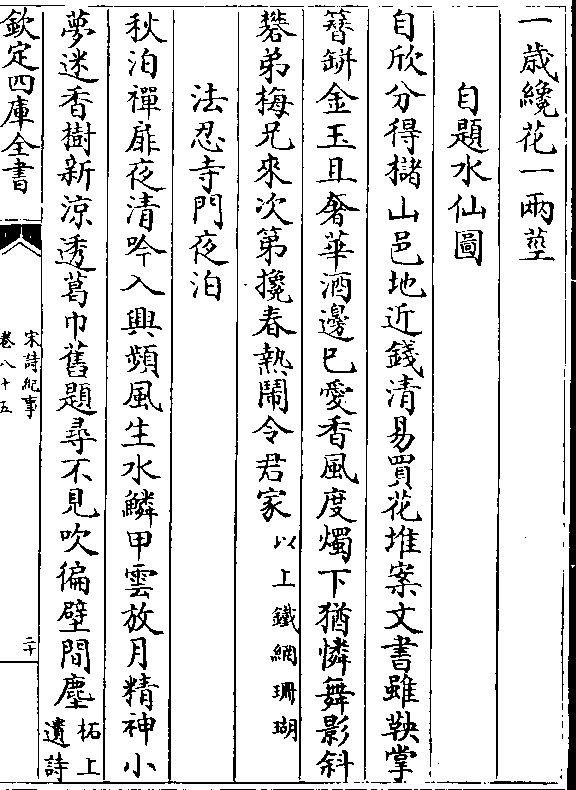 一歳纔花一兩莖
自題水仙圖
自欣分得櫧山邑地近錢清易買花堆案文書雖鞅掌
簪缾金玉且奢華酒邊已愛香風度燭下猶憐舞影斜
礬弟梅兄來次第攙春熱鬧令君家以上鐵網珊瑚
法忍寺門夜泊
秋泊禪扉夜清吟入興頻風生水鱗甲雲放月精神小
夢迷香樹新涼透葛巾舊題尋不見吹徧壁間塵柘上遺詩
欽定四庫全書
宋詩紀事
卷八十五
二十